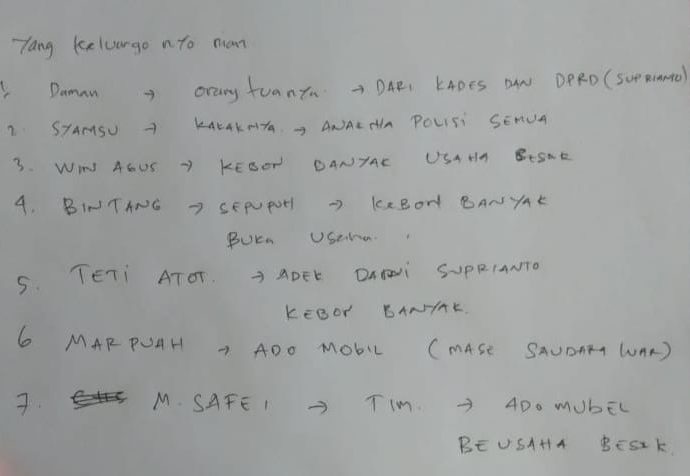 Yang keluargo nyo man
1. Daman → orang tuanya. → DARI KADES DAN DPRD (SUPRIANTO)
2. SYAMSU → KAKAKNYA. → ANAK NYA POLISI SEMUA
3. WIN AGUS → KEBON BANYAK USAHA BESAR
4. BINTANG → SEPUPUH → KEBON BANYAK
BUKA Usaha.
5. TETI ATOT. → ADEK DARI SUPRIANTO
KEBON BANYAK.
6 MARPUAH → ADO MOBIL (MASE SAUDARA WAR)
7. M. SAFEI → TIM. → ADO MUBEL
BEUSAHA BESAK.